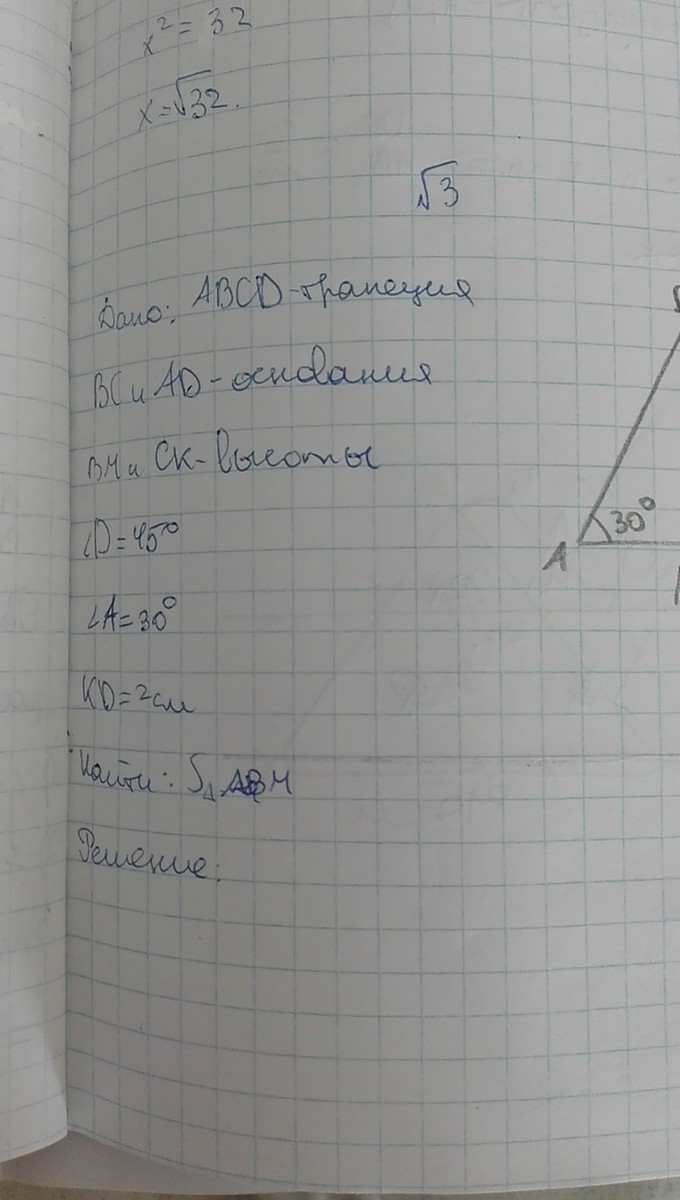 x² = 32
x = √32.
√3
Дано: ABCD - трапеция
BC и AD - основания
BM и CK - высоты
∠D = 45°
∠A = 30°
30°
A
KD = 2см
Найти: S△ ABM
Решение: